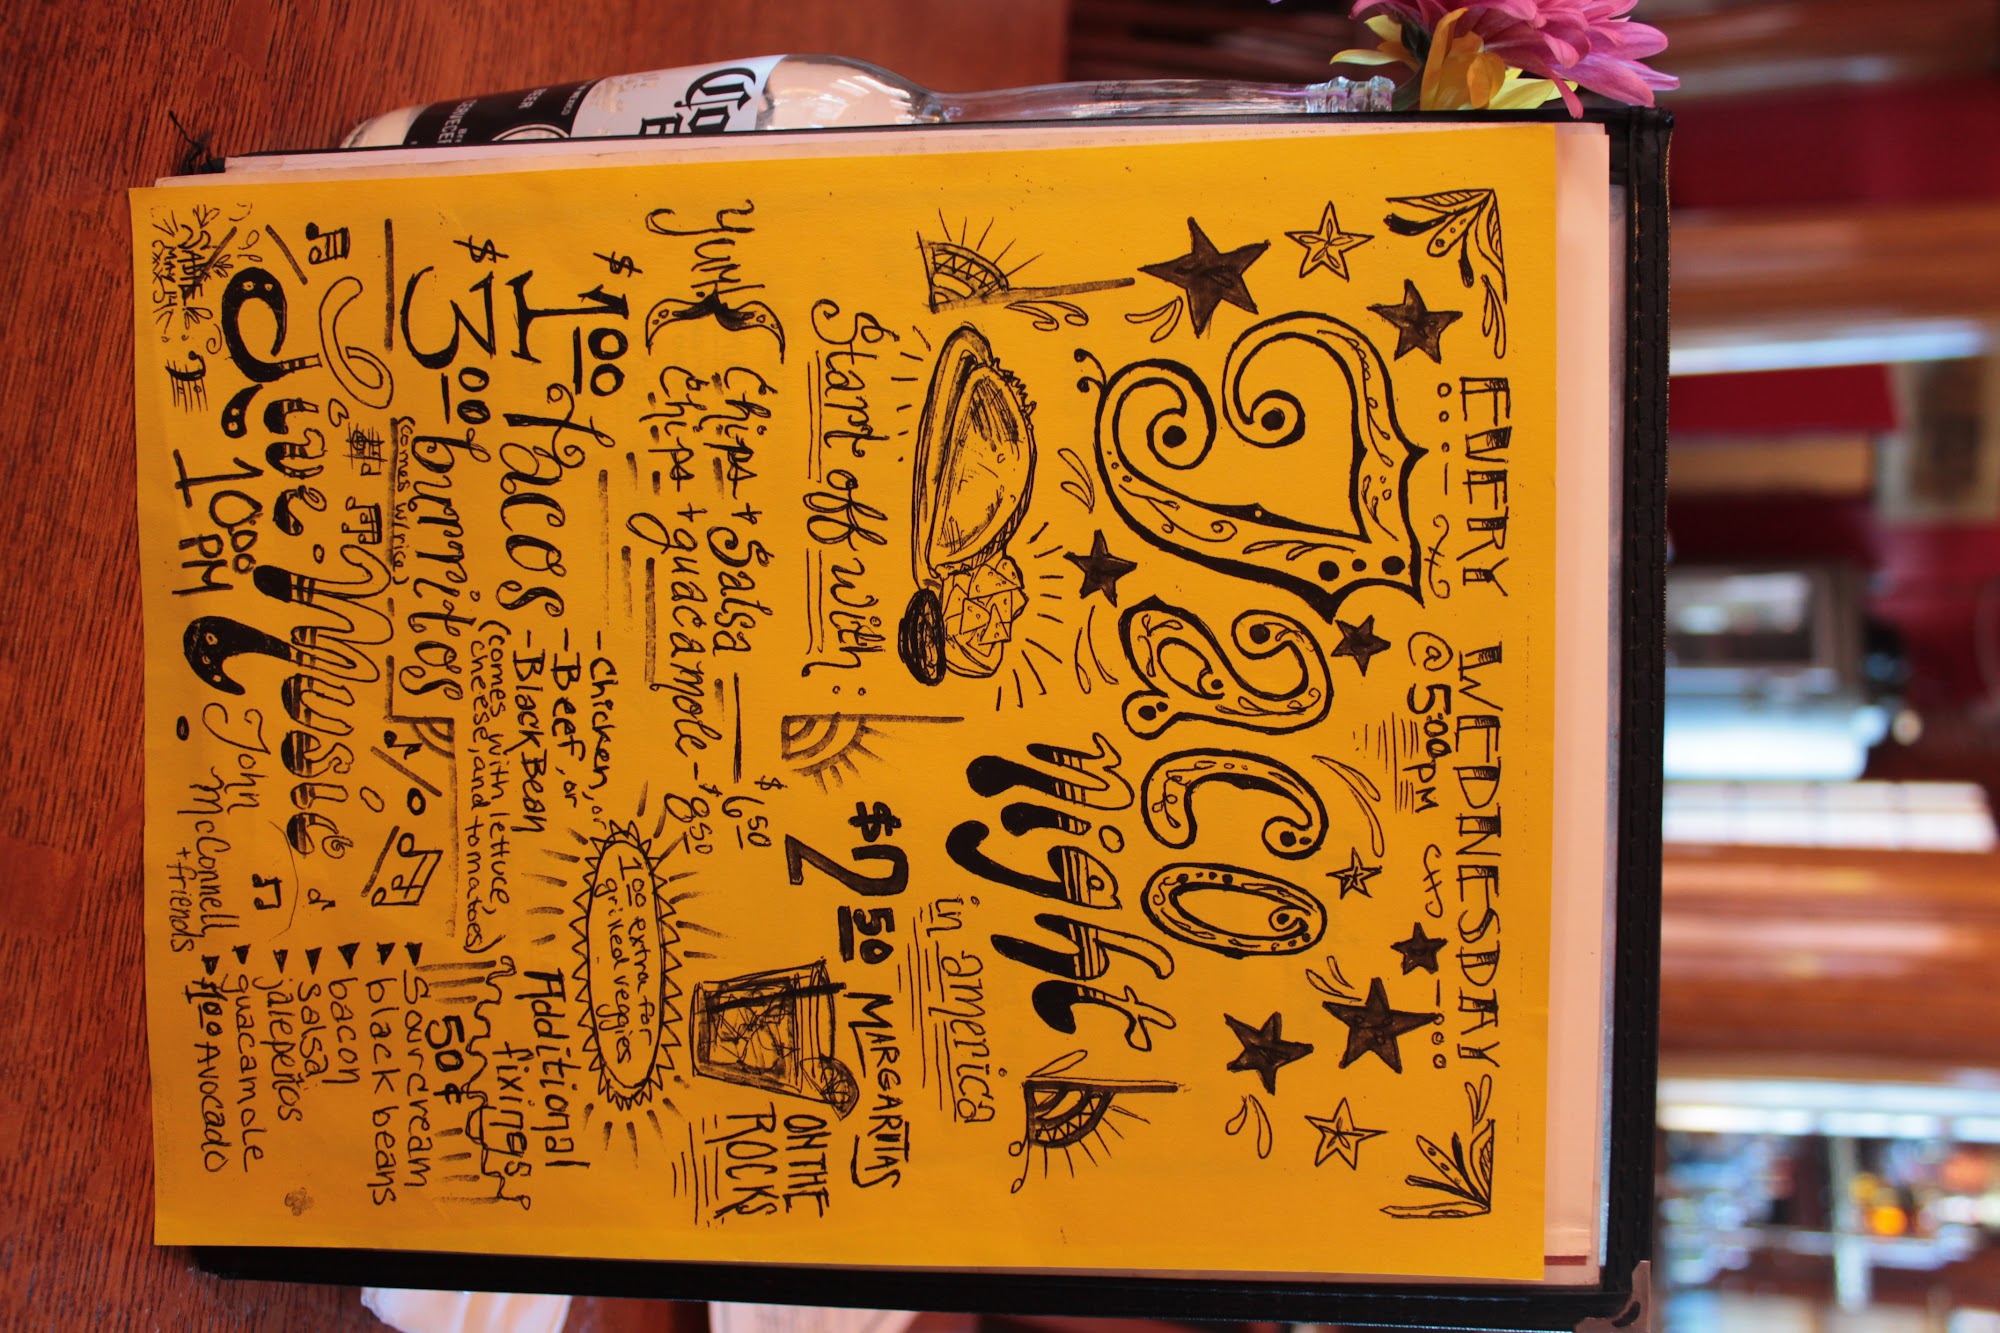 EVERY WEDNESDAY
@ 5:00 PM
Taco
night
in america
$2.50 MARGARITAS
ON THE
ROCKS
Start off with:
YUM!
Chips + Salsa $6.50
Chips + guacamole - $8.50
$1.00 extra for
grilled veggies
$1.00
1 Tacos
- Chicken, or
- Beef, or
- Black Bean
(comes with lettuce,
cheese, and tomatoes)
$3.00 burritos
(comes w/rice)
Additional
fixings
50¢
sour cream
black beans
bacon
salsa
jalepeños
guacamole
$1.00 AVOCADO
Live Music
10:00
PM
John
McConnell
+ friends
Corona
BEER